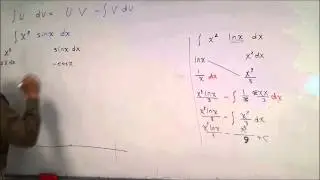 ∫ U dU = U V - ∫ V dU
∫ x² sinx dx
x² sinx dx
2x dx -cosx
∫ x² lnx dx
lnx x²
1/x dx x³/3
x³ lnx/3 - ∫ 1/x x³/3 dx
x³ lnx/3 - ∫ x²/3 dx
x³ lnx/3 - x³/9 + C